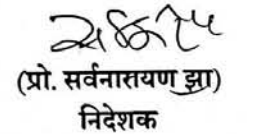 (प्रो. सर्वनारायण झा)
निदेशक